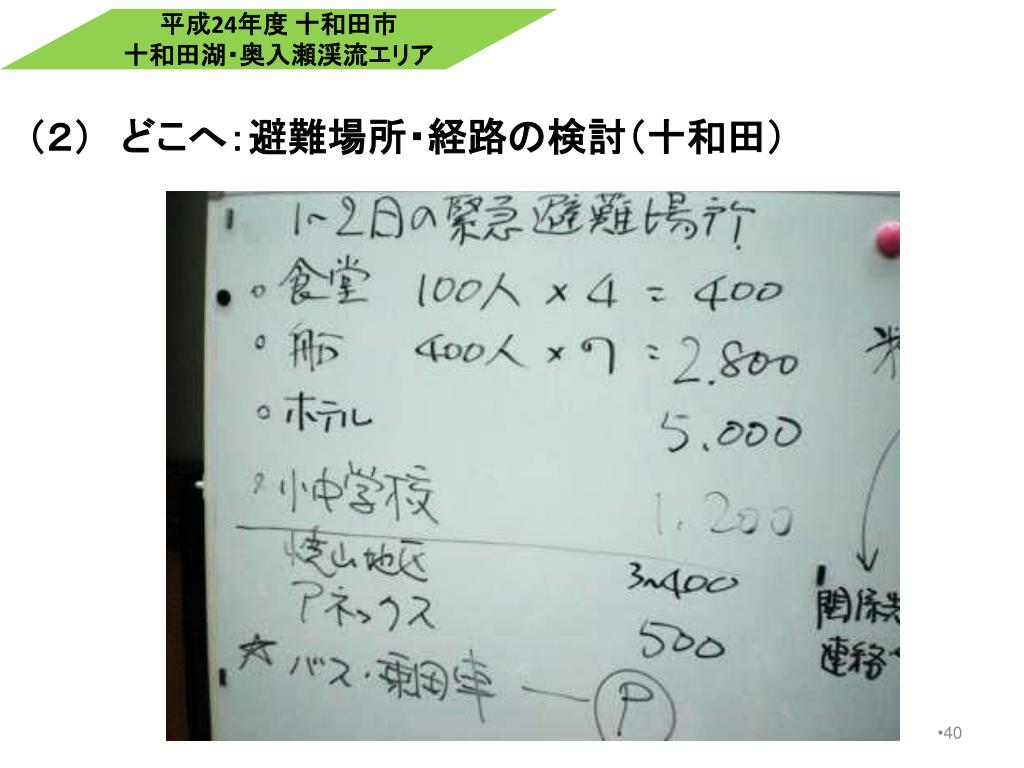 平成24年度 十和田市
十和田湖・奥入瀬渓流エリア
（２） どこへ：避難場所・経路の検討（十和田）
1〜2日の緊急避難場所
○食堂 100人 × 4 = 400
○船 400人 × 7 = 2.800
○ホテル 5.000
小中学校 1.200
焼山地区 3〜400
アネックス 500
☆バス・乗用車 — Ⓟ
関係先
連絡
•40